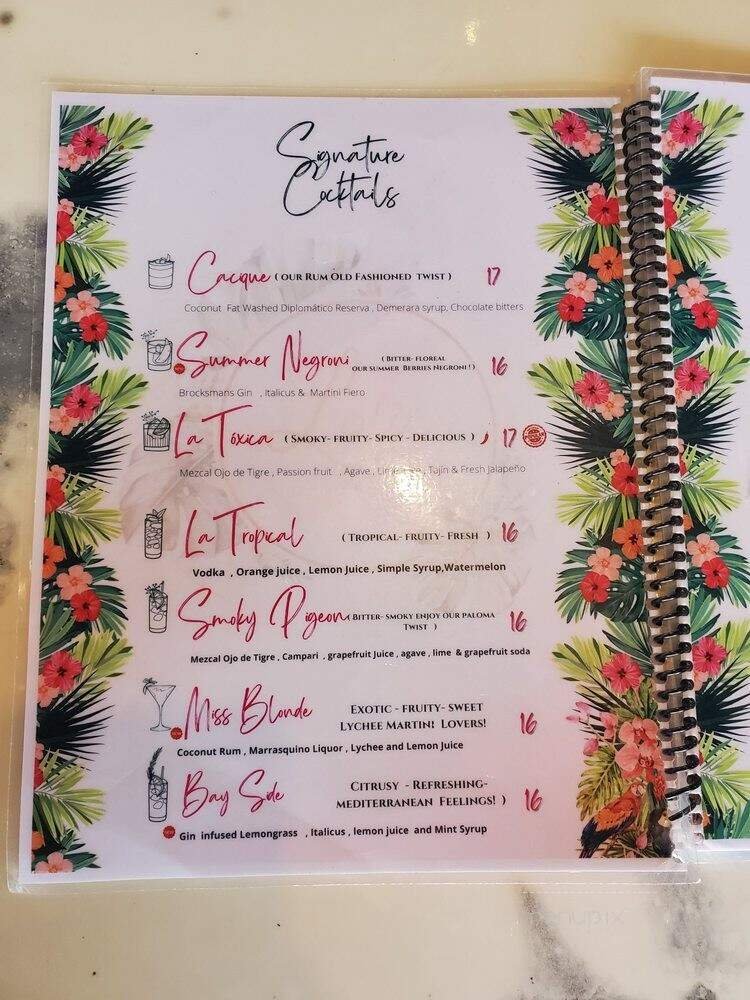 Signature
Cocktails
Cacique ( OUR RUM OLD FASHIONED TWIST ) 17
Coconut Fat Washed Diplomático Reserva , Demerara syrup, Chocolate bitters
Summer Negroni ( BITTER- FLOREAL
OUR SUMMER BERRIES NEGRONI ! ) 16
Brocksmans Gin , Italicus & Martini Fiero
La Tóxica ( SMOKY- FRUITY- SPICY - DELICIOUS ) 17
Mezcal Ojo de Tigre , Passion fruit , Agave , Tajín & Fresh Jalapeño
La Tropical ( TROPICAL- FRUITY- FRESH ) 16
Vodka , Orange juice , Lemon Juice , Simple Syrup,Watermelon
Smoky Pigeon BITTER- SMOKY ENJOY OUR PALOMA
TWIST ) 16
Mezcal Ojo de Tigre , Campari , grapefruit Juice , agave , lime & grapefruit soda
Miss Blonde EXOTIC - FRUITY- SWEET
LYCHEE MARTINI LOVERS! 16
Coconut Rum , Marrasquino Liquor , Lychee and Lemon Juice
Bay Side CITRUSY - REFRESHING-
MEDITERRANEAN FEELINGS! ) 16
Gin infused Lemongrass , Italicus , lemon juice and Mint Syrup